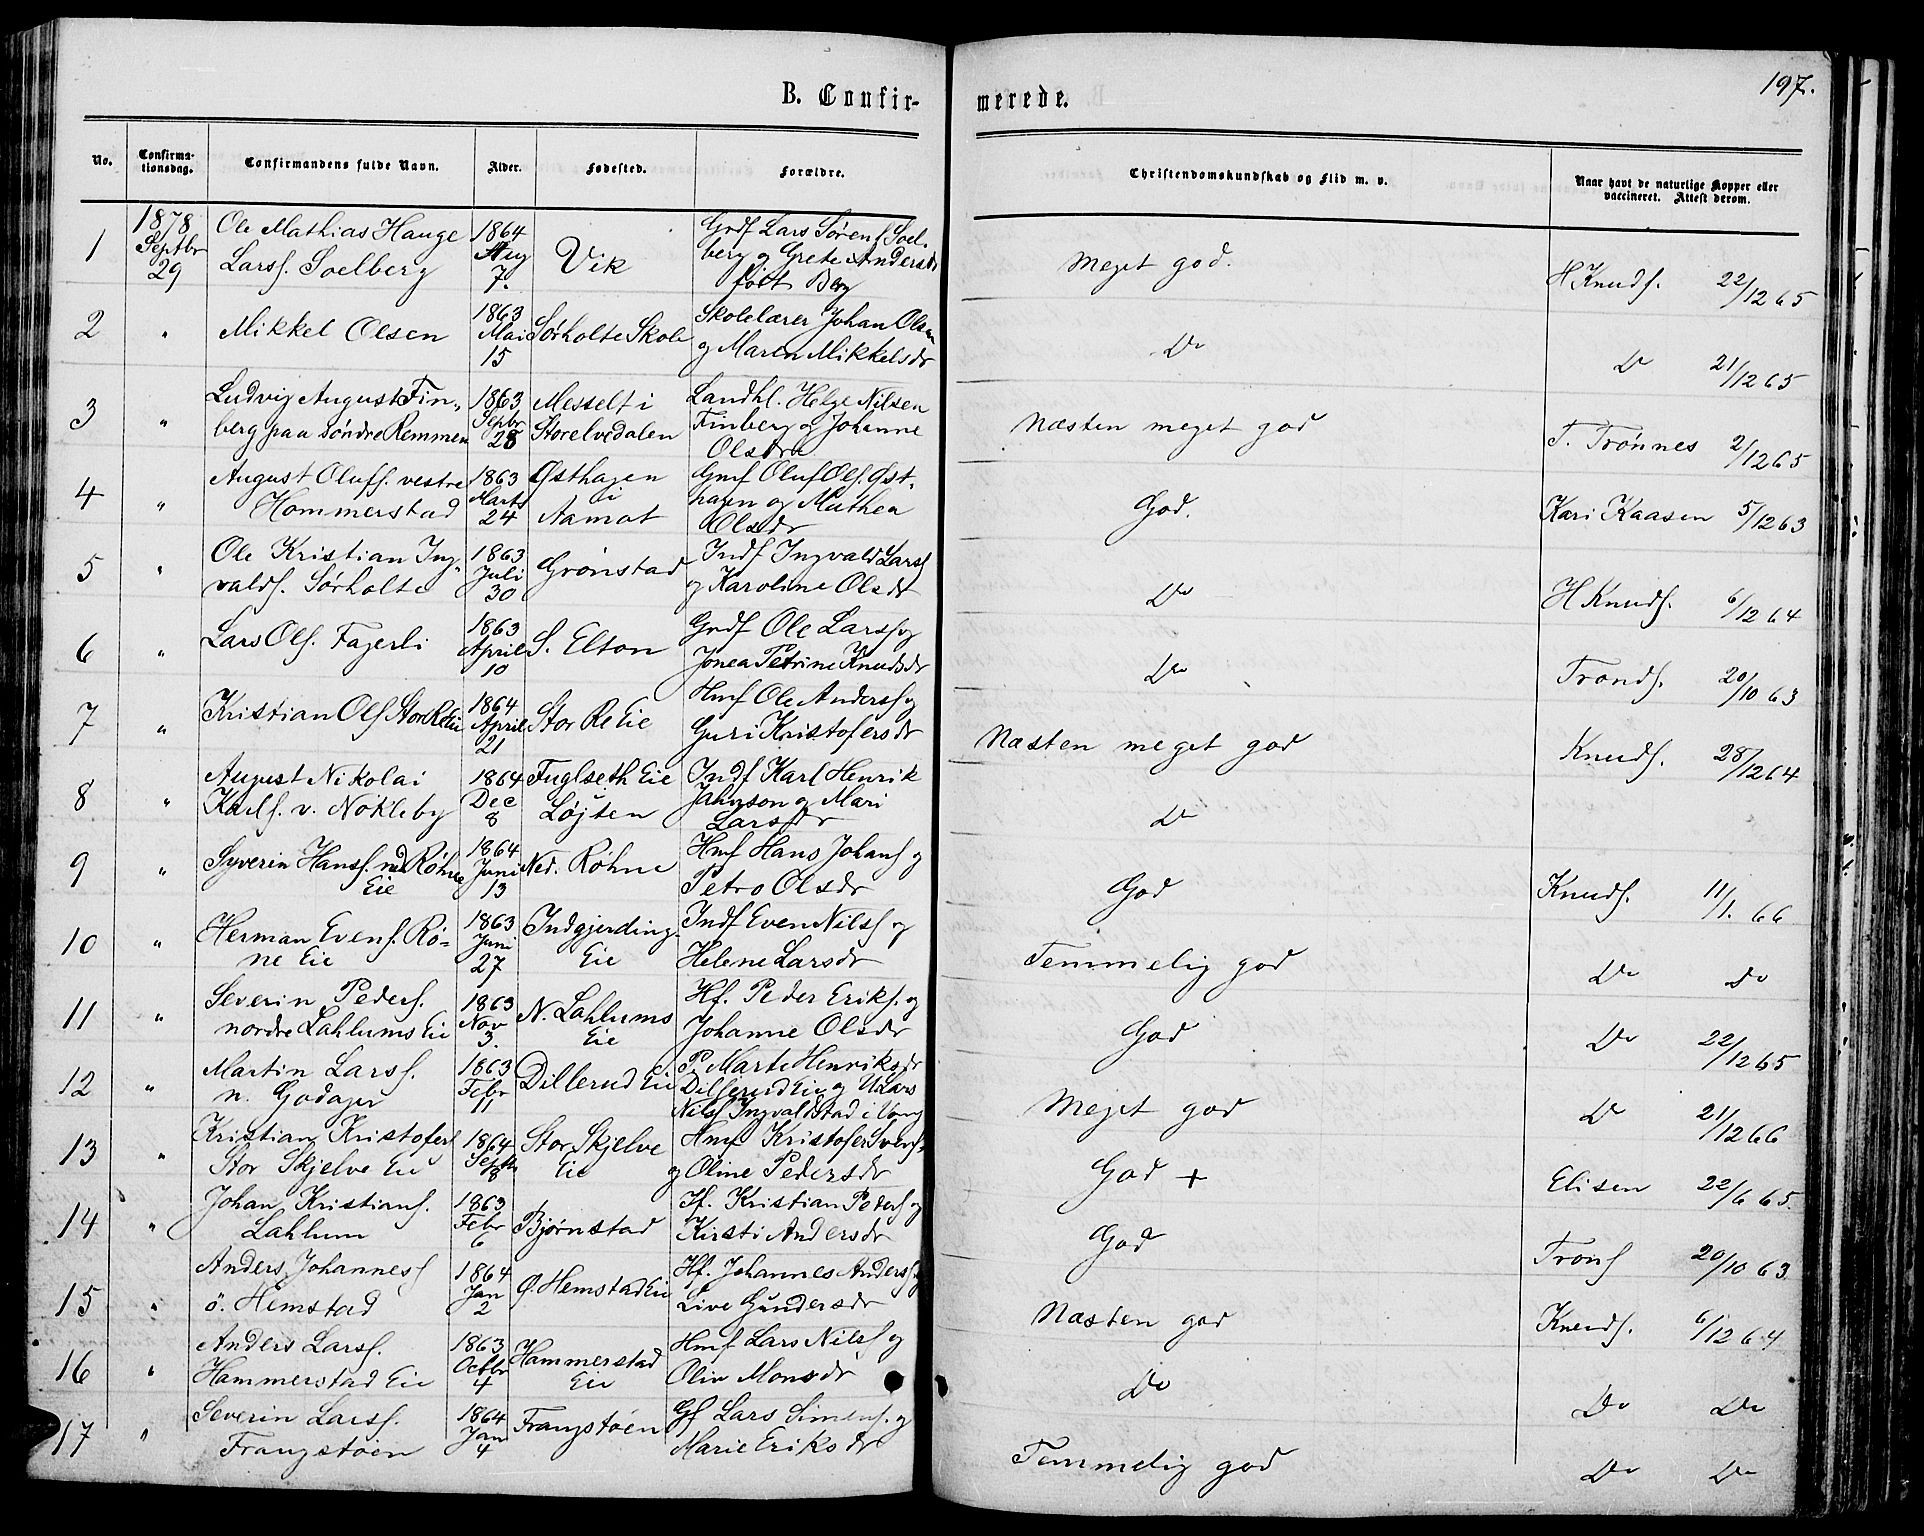 197.
B. Confir-
merede.
No.
Confirma-
tionsdag.
Confirmandens fulde Navn.
Alder.
Fødested.
Forældre.
Christendomskundskab og Flid m. v.
Naar havt de naturlige Kopper eller
vaccineret. Attest derom.
1 1878 Septbr 29
Ole Mathias Hauge
Larss. Soelberg
1864 Aug 7.
Vik
Grdf Lars Sørens Soel-
berg og Grete Andersdr
født Berg
Meget god.
H Knuds. 22/12 65
2 "
Mikkel Olsen
1863 Mai 15
Sørholte Skole
Skolelærer Johan Olsen
og Maren Mikkelsdr
Do
Do 21/12 65
3 "
Ludvig August Fin-
berg paa søndre Remmen
1863 Sepbr 28
Messelt i
Storelvedalen
Landhl. Helge Nilsen
Finberg og Johanne
Olsdr
Næsten meget god
T. Trønnes 2/12 65
4 "
August Olufs. vestre
Hommerstad
1863 Marts 24
Østhagen
i
Aamot
Gmf Oluf Ols. Øst-
hagen og Mathea
Olsdr
God.
Kari Kaasen 5/12 63
5 "
Ole Kristian Ing-
valds. Sørholte
1863 Juli 30
Grønstad
Indf Ingvald Larss
og Karoline Olsdr
Do
H Knuds. 6/12 64
6 "
Lars Ols. Fagerli
1863 April 10
S. Elton
Grdf Ole Larss og
Jonea Petrine Knudsdr
Do
Tronds. 20/10 63
7 "
Kristian Ols Stor Re Eie
1864 April 21
Stor Re Eie
Hmf Ole Anderss og
Guri Kristofersdr
Næsten meget god
Knuds. 28/12 64
8 "
August Nikolai
Karls. v. Nökleby
1864 Dec 8
Fuglseth Eie
Løjten
Indf Karl Henrik
og Mari
Larsdr
Do
9 "
Syverin Hanss. ned Röhne
Eie
1864 Juni 13
Ned. Röhne
Hmf Hans Johans og
Petro Olsdr
God
Knuds. 11/1. 66
10 "
Herman Evens. Rö-
ne Eie
1863 Juni 27
Indgjerding-
Eie
Indf Even Nilss og
Helene Larsdr
Temmelig god
Do do
11 "
Severin Peders.
nordre Lahlums Eie
1863 Nov 3.
N. Lahlums
Eie
Hf. Peder Eriks. og
Johanne Olsdr
God
Do 22/12 65
12 "
Martin Larss.
n. Godager
1863 Febr 11
Dillerud Eie
P. Marte Henriksdr
Dillerud Eie og U Lars
Nilss Ingvaldstad i Vang
Meget god
Do 21/12 66
13 "
Kristian Kristofers
Stor Skjelve Eie
1864 Septbr 8
Stor Skjelve
Eie
Hmf Kristofer Svens.
og Oline Pedersdr
God +
Elisen 22/6 65.
14 "
Johan Kristians.
Lahlum
1863 Febr 6
Bjørnstad
Hf. Kristian Peders og
Kirsti Andersdr
God
Trons 20/10 63.
15 "
Anders Johanness
ö. Hemstad
1864 Jan 2
Ø. Hemstad Eie
Hf. Johannes Anderss og
Live Gundersdr
Næsten god
Knuds. 6/12 64
16 "
Anders Larss.
Hammerstad Eie
1863 Octbr 4
Hammerstad
Eie
Hmf Lars Nilss og
Olia Monsdr
Do
Do Do
17 "
Severin Larss.
Frangstöen
1864 Jan 4
Frangstöen
Gf Lars Simens. og
Marie Eriksdr
Temmelig god
Do Do